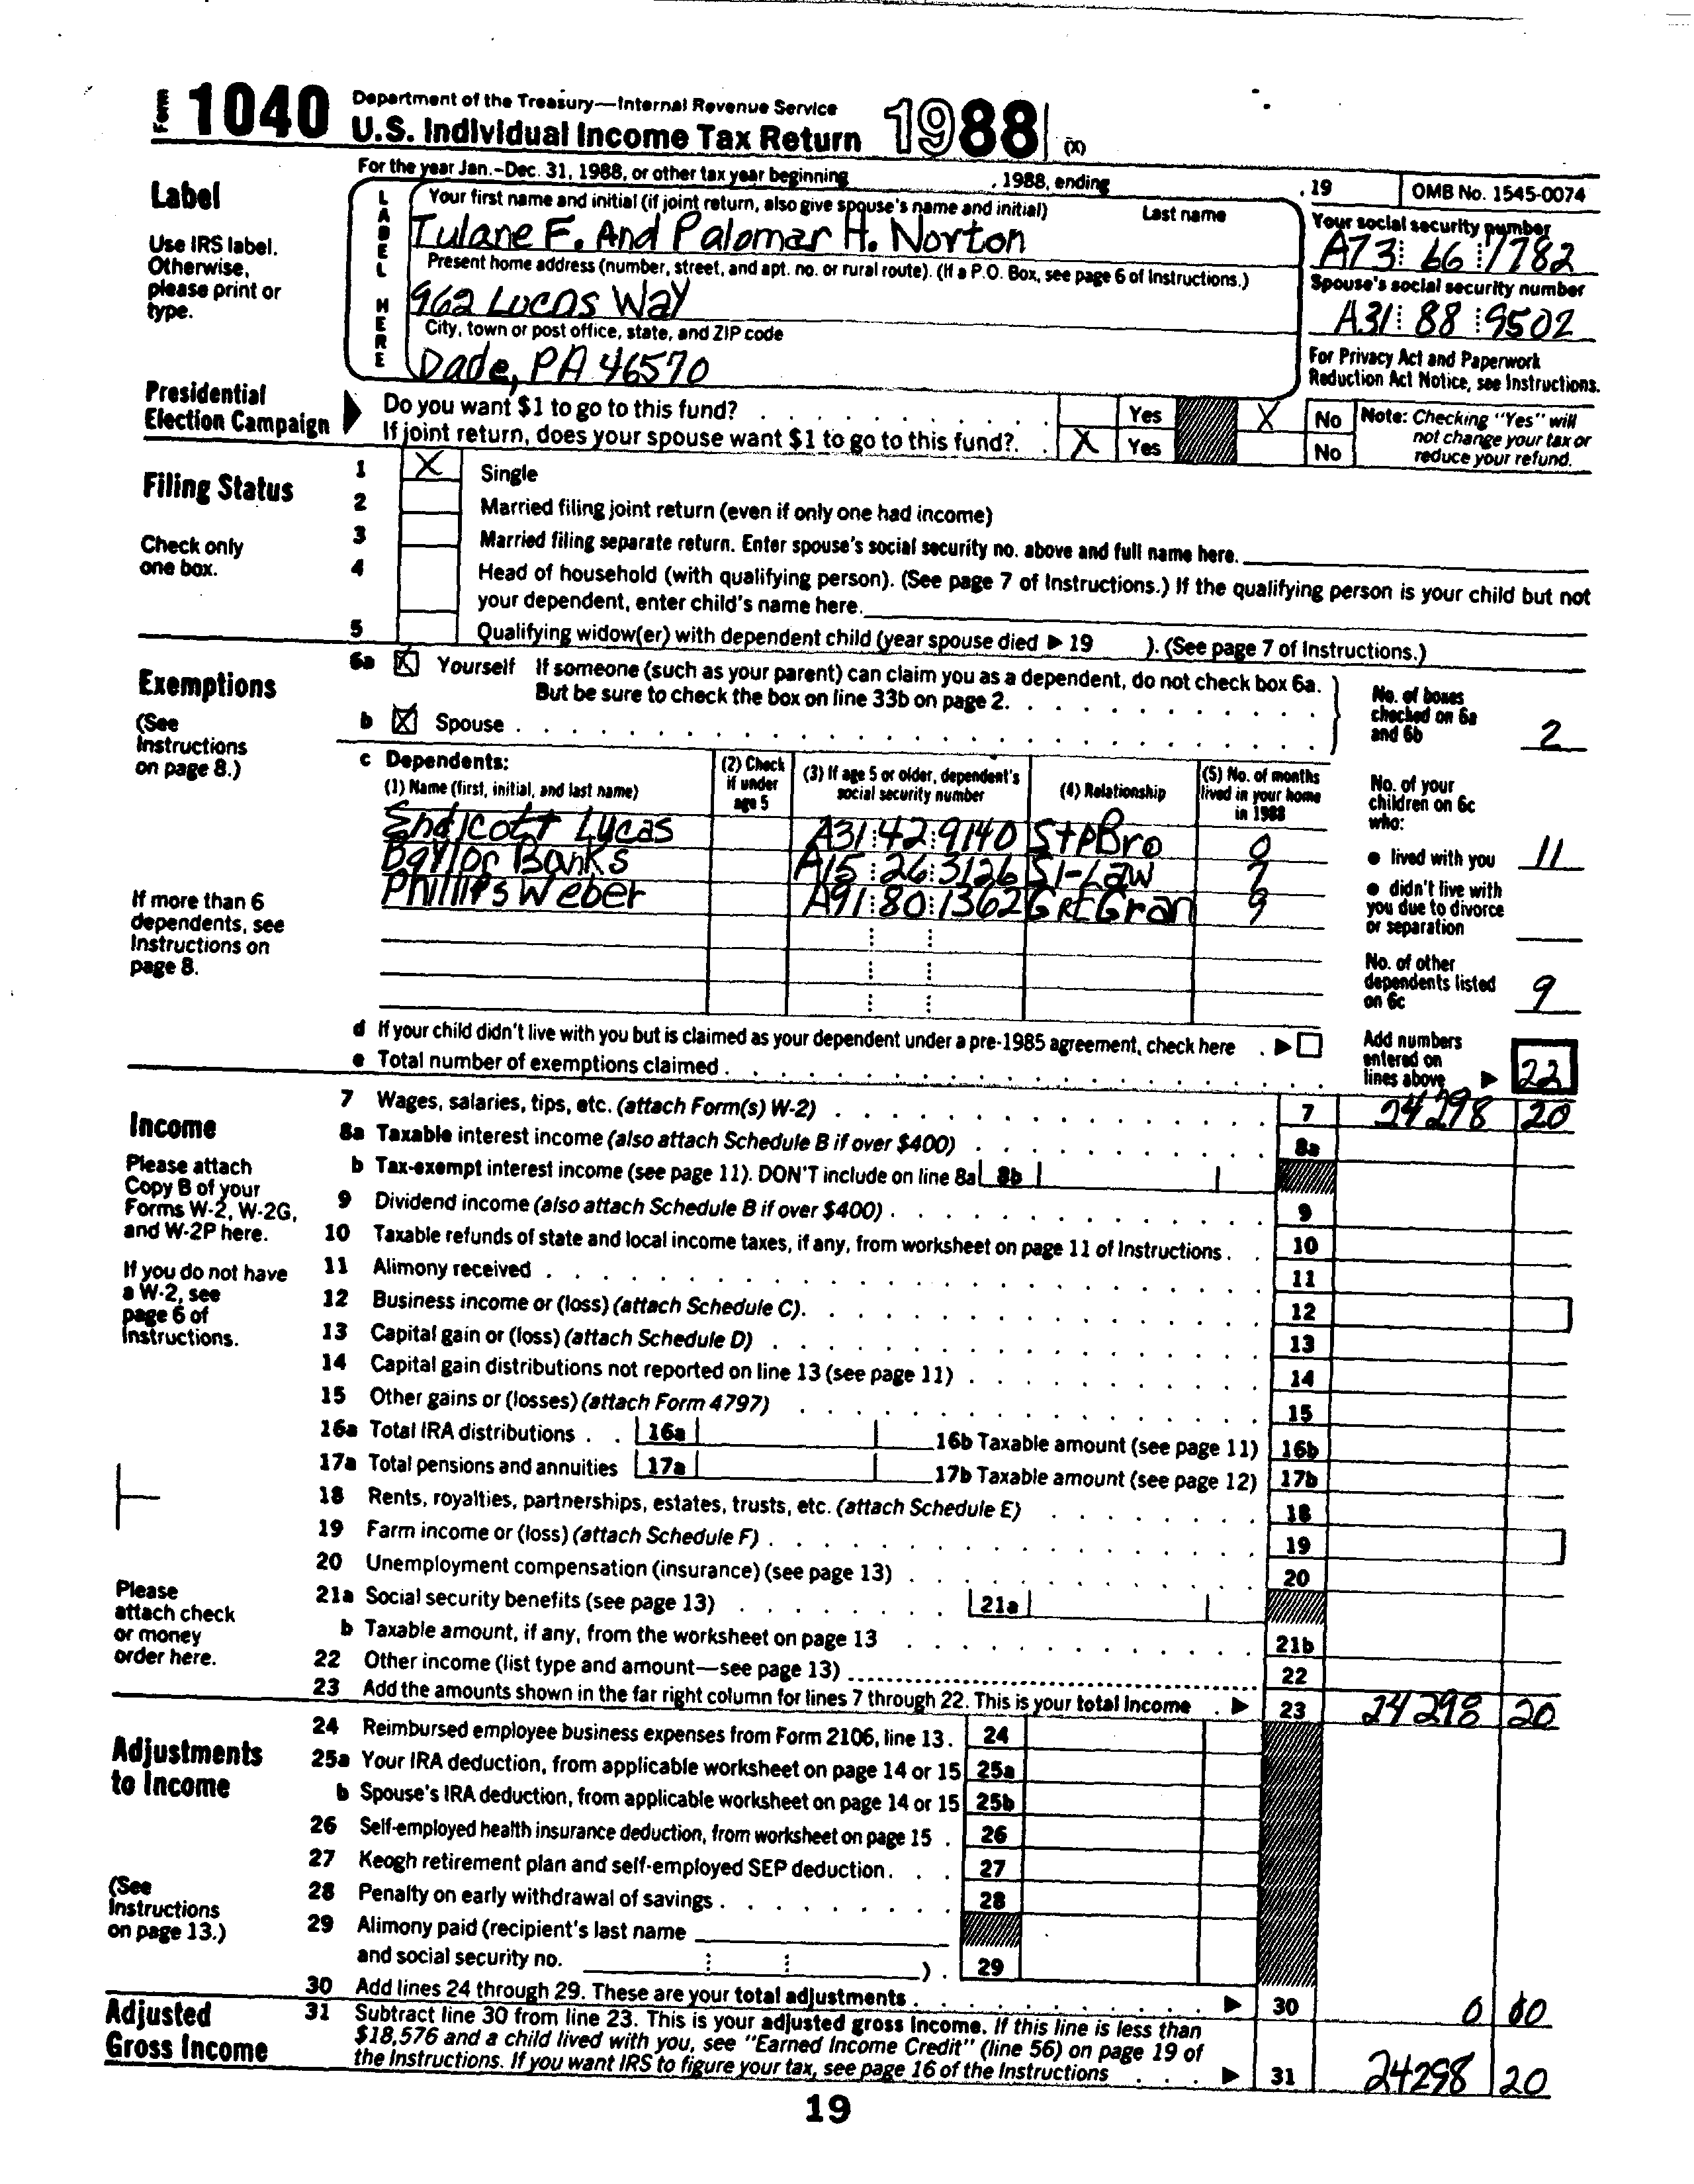 Form 1040 Department of the Treasury—Internal Revenue Service
U.S. Individual Income Tax Return 1988 (X)
For the year Jan.-Dec. 31, 1988, or other tax year beginning , 1988, ending , 19 OMB No. 1545-0074
Label
Use IRS label.
Otherwise,
please print or
type.
LABEL HERE
Your first name and initial (if joint return, also give spouse's name and initial) Last name
Tulane F. And Palomar H. Norton
Present home address (number, street, and apt. no. or rural route). (If a P.O. Box, see page 6 of Instructions.)
962 Lucas Way
City, town or post office, state, and ZIP code
Dade, PA 46570
Your social security number
A73 66 7782
Spouse's social security number
A31 88 9502
For Privacy Act and Paperwork
Reduction Act Notice, see Instructions.
Presidential
Election Campaign
Do you want $1 to go to this fund? . . . . . . . . . . Yes X No
If joint return, does your spouse want $1 to go to this fund? . . X Yes No
Note: Checking "Yes" will
not change your tax or
reduce your refund.
Filing Status
Check only
one box.
1 X Single
2 Married filing joint return (even if only one had income)
3 Married filing separate return. Enter spouse's social security no. above and full name here.
4 Head of household (with qualifying person). (See page 7 of Instructions.) If the qualifying person is your child but not
your dependent, enter child's name here.
5 Qualifying widow(er) with dependent child (year spouse died ▶ 19 ). (See page 7 of Instructions.)
Exemptions
(See
Instructions
on page 8.)
6a X Yourself If someone (such as your parent) can claim you as a dependent, do not check box 6a.
But be sure to check the box on line 33b on page 2.
b X Spouse
No. of boxes
checked on 6a
and 6b 2
c Dependents:
(1) Name (first, initial, and last name)
(2) Check
if under
age 5
(3) If age 5 or older, dependent's
social security number
(4) Relationship
(5) No. of months
lived in your home
in 1988
Endicott Lucas A31 42 9140 StpBro 0
Baylor Banks A15 26 3126 SI-Law 7
Phillips Weber A91 80 1362 GrEGran 9
If more than 6
dependents, see
Instructions on
page 8.
No. of your
children on 6c
who:
● lived with you 11
● didn't live with
you due to divorce
or separation
No. of other
dependents listed
on 6c 9
d If your child didn't live with you but is claimed as your dependent under a pre-1985 agreement, check here . ▶
e Total number of exemptions claimed
Add numbers
entered on
lines above ▶ 22
Income
Please attach
Copy B of your
Forms W-2, W-2G,
and W-2P here.
If you do not have
a W-2, see
page 6 of
Instructions.
Please
attach check
or money
order here.
7 Wages, salaries, tips, etc. (attach Form(s) W-2) 7 24298 20
8a Taxable interest income (also attach Schedule B if over $400) 8a
b Tax-exempt interest income (see page 11). DON'T include on line 8a 8b
9 Dividend income (also attach Schedule B if over $400) 9
10 Taxable refunds of state and local income taxes, if any, from worksheet on page 11 of Instructions 10
11 Alimony received 11
12 Business income or (loss) (attach Schedule C) 12
13 Capital gain or (loss) (attach Schedule D) 13
14 Capital gain distributions not reported on line 13 (see page 11) 14
15 Other gains or (losses) (attach Form 4797) 15
16a Total IRA distributions 16a 16b Taxable amount (see page 11) 16b
17a Total pensions and annuities 17a 17b Taxable amount (see page 12) 17b
18 Rents, royalties, partnerships, estates, trusts, etc. (attach Schedule E) 18
19 Farm income or (loss) (attach Schedule F) 19
20 Unemployment compensation (insurance) (see page 13) 20
21a Social security benefits (see page 13) 21a
b Taxable amount, if any, from the worksheet on page 13 21b
22 Other income (list type and amount—see page 13) 22
23 Add the amounts shown in the far right column for lines 7 through 22. This is your total income ▶ 23 24298 20
Adjustments
to Income
(See
Instructions
on page 13.)
24 Reimbursed employee business expenses from Form 2106, line 13. 24
25a Your IRA deduction, from applicable worksheet on page 14 or 15 25a
b Spouse's IRA deduction, from applicable worksheet on page 14 or 15 25b
26 Self-employed health insurance deduction, from worksheet on page 15 26
27 Keogh retirement plan and self-employed SEP deduction 27
28 Penalty on early withdrawal of savings 28
29 Alimony paid (recipient's last name
and social security no. ). 29
30 Add lines 24 through 29. These are your total adjustments ▶ 30 0 00
Adjusted
Gross Income
31 Subtract line 30 from line 23. This is your adjusted gross income. If this line is less than
$18,576 and a child lived with you, see "Earned Income Credit" (line 56) on page 19 of
the Instructions. If you want IRS to figure your tax, see page 16 of the Instructions ▶ 31 24298 20
19